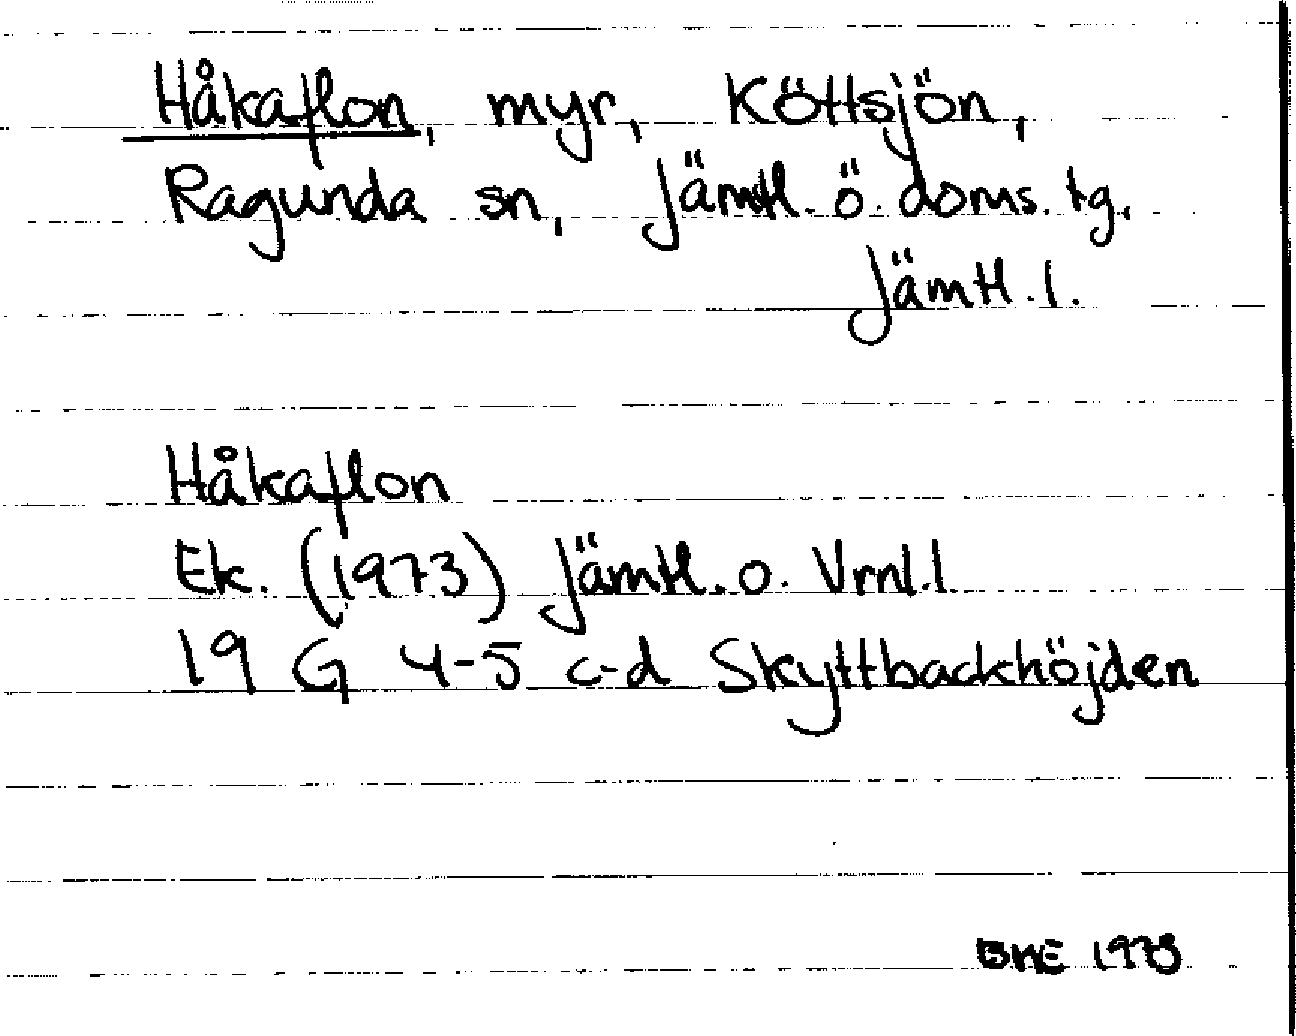 Håkaflon, myr, Köttsjön,
Ragunda sn, Jämtl. ö. doms. tg,
Jämtl. l.
Håkaflon
Ek. (1973) Jämtl. o. Vrnl. l
19 G 4-5 c-d Skyttbackhöjden
1973